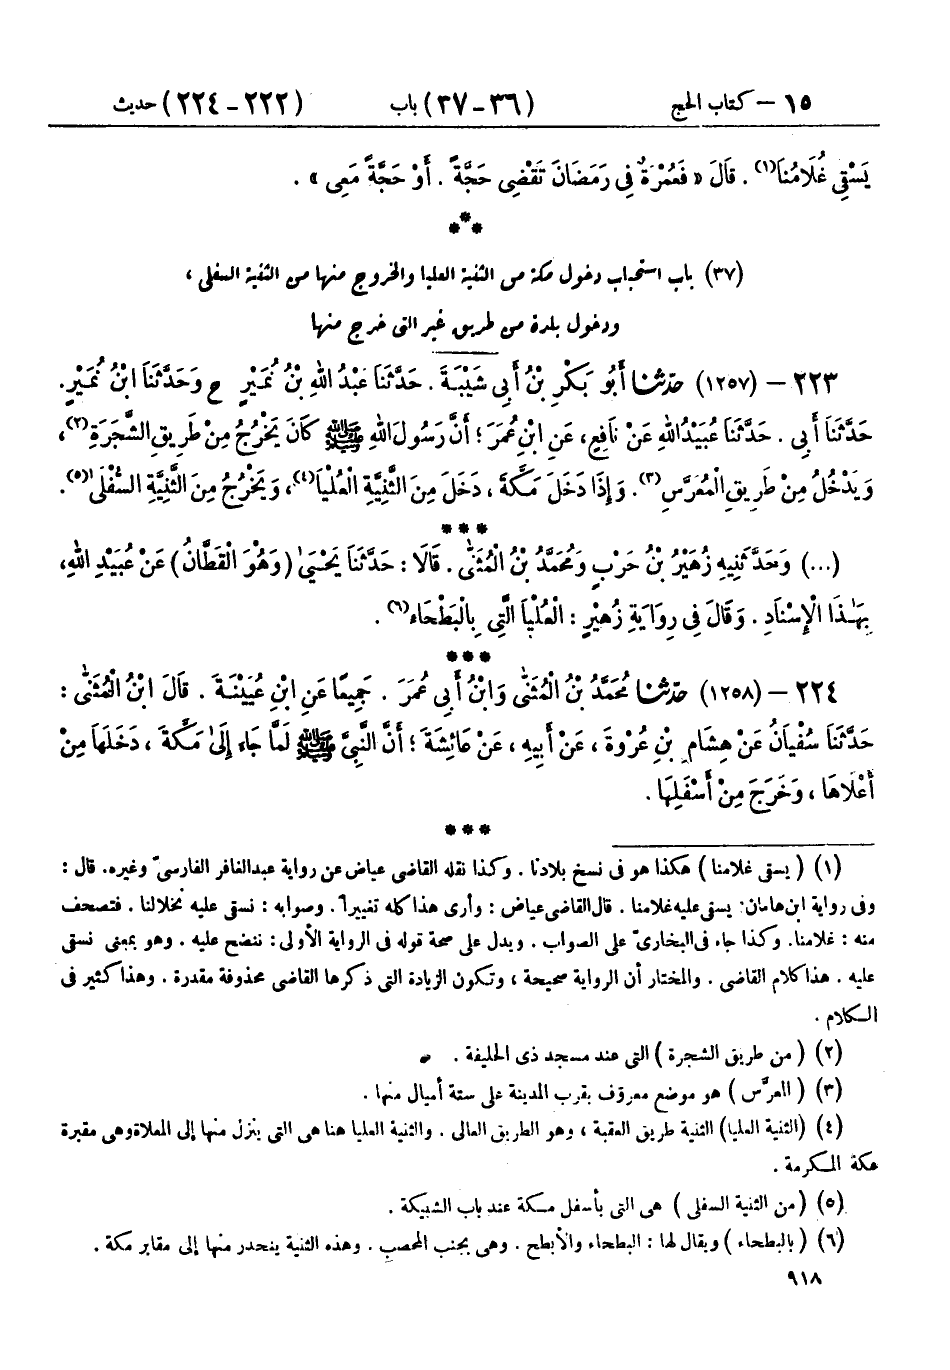 ١٥ – كتاب الحج (٣٦-٣٧) باب (٢٢٢-٢٢٤) حديث
يَسْقِي غُلَامُنَا(١) . قَالَ « فَعُمْرَةٌ فِي رَمَضَانَ تَقْضِي حَجَّةً . أَوْ حَجَّةً مَعِي » .
***
(٣٧) باب استحباب دخول مكة من الثنية العليا والخروج منها من الثنية السفلى ،
ودخول بلدة من طريق غير التى خرج منها
٢٢٣ – (١٢٥٧) حدثنا أَبُو بَكْرِ بْنُ أَبِي شَيْبَةَ . حَدَّثَنَا عَبْدُ اللهِ بْنُ نُمَيْرٍ ح وَحَدَّثَنَا ابْنُ نُمَيْرٍ.
حَدَّثَنَا أَبِي . حَدَّثَنَا عُبَيْدُ اللهِ عَنْ نَافِعٍ، عَنِ ابْنِ عُمَرَ ؛ أَنَّ رَسُولَ اللهِ ﷺ كَانَ يَخْرُجُ مِنْ طَرِيقِ الشَّجَرَةِ(٢)،
وَيَدْخُلُ مِنْ طَرِيقِ الْمُعَرَّسِ(٣). وَإِذَا دَخَلَ مَكَّةَ ، دَخَلَ مِنَ الثَّنِيَّةِ الْعُلْيَا(٤)، وَيَخْرُجُ مِنَ الثَّنِيَّةِ السُّفْلَى(٥).
***
(...) وَحَدَّثَنِيهِ زُهَيْرُ بْنُ حَرْبٍ وَمُحَمَّدُ بْنُ الْمُثَنَّى . قَالَا : حَدَّثَنَا يَحْيَى (وَهُوَ الْقَطَّانُ) عَنْ عُبَيْدِ اللهِ،
بِهَذَا الْإِسْنَادِ . وَقَالَ فِي رِوَايَةِ زُهَيْرٍ : الْعُلْيَا الَّتِي بِالْبَطْحَاءِ(٦) .
***
٢٢٤ – (١٢٥٨) حدثنا مُحَمَّدُ بْنُ الْمُثَنَّى وَابْنُ أَبِي عُمَرَ . جَمِيعًا عَنِ ابْنِ عُيَيْنَةَ . قَالَ ابْنُ الْمُثَنَّى :
حَدَّثَنَا سُفْيَانُ عَنْ هِشَامِ بْنِ عُرْوَةَ ، عَنْ أَبِيهِ ، عَنْ عَائِشَةَ ؛ أَنَّ النَّبِيَّ ﷺ لَمَّا جَاءَ إِلَى مَكَّةَ ، دَخَلَهَا مِنْ
أَعْلَاهَا ، وَخَرَجَ مِنْ أَسْفَلِهَا .
***
(١) ( يسقى غلامنا ) هكذا هو فى نسخ بلادنا . وكذا نقله القاضى عياض عن رواية عبدالغافر الفارسىّ وغيره. قال :
وفى رواية ابن هامان: يسقى عليه غلامنا . قال القاضى عياض : وأرى هذا كله تغييرا. وصوابه : نسقى عليه نخلالنا . فتصحف
منه : غلامنا. وكذا جاء فى البخارىّ على الصواب . ويدل على صحة قوله فى الرواية الأولى: ننضح عليه . وهو بمعنى نسقى
عليه . هذا كلام القاضى . والمختار أن الرواية صحيحة ، وتكون الزيادة التى ذكرها القاضى محذوفة مقدرة . وهذا كثير فى
الكلام .
(٢) ( من طريق الشجرة ) التى عند مسجد ذى الحليفة .
(٣) ( المعرَّس ) هو موضع معروف بقرب المدينة على ستة أميال منها .
(٤) (الثنية العليا) الثنية طريق العقبة ، وهو الطريق العالى . والثنية العليا هنا هى التى ينزل منها إلى المعلاة وهى مقبرة
مكة المكرمة .
(٥) ( من الثنية السفلى ) هى التى بأسفل مكة عند باب الشبيكة .
(٦) ( بالبطحاء ) ويقال لها : البطحاء والأبطح . وهى بجنب المحصب . وهذه الثنية ينحدر منها إلى مقابر مكة .
٩١٨